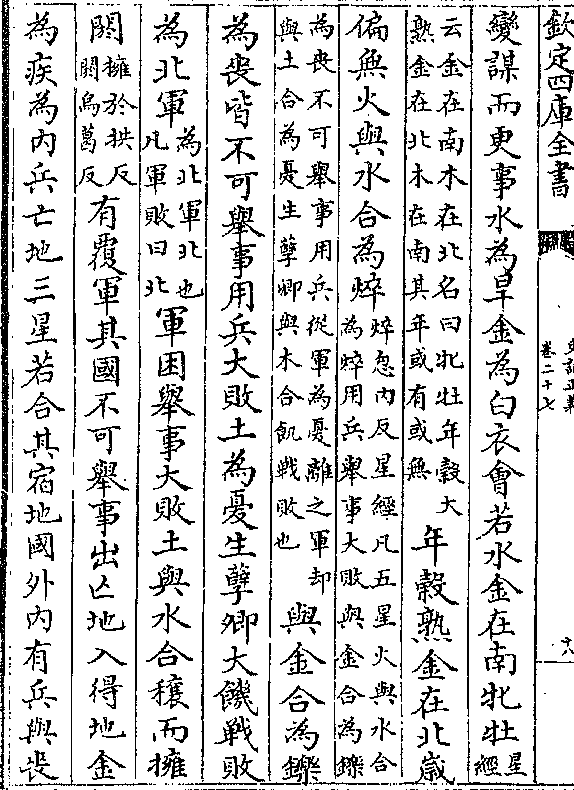 欽定四庫全書
史記正義
卷二十七
十八
變謀而更事水為旱金為白衣會若水金在南牝牡星經
云金在南木在北名曰牝牡年穀大熟金在北木在南其年或有或無年穀熟金在北歲
偏無火與水合為焠焠怱内反星經凡五星火與水合為焠用兵舉事大敗與金合為鑠
為喪不可舉事用兵從軍為憂離之軍却與土合為憂生孽卿與木合飢戰敗也與金合為鑠
為喪皆不可舉事用兵大敗土為憂生孽卿大饑戰敗
為北軍為北軍北也凡軍敗曰北軍困舉事大敗土與水合穰而擁
閼擁於拱反閼烏葛反有覆軍其國不可舉事出亡地入得地金
為疾為内兵亡地三星若合其宿地國外内有兵與喪